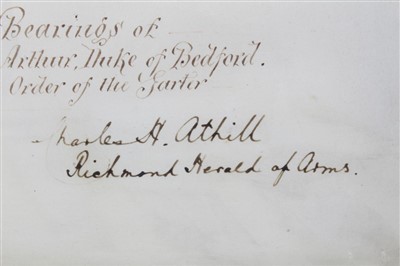 Bearings of
Arthur, Duke of Bedford.
Order of the Garter
Charles H. Athill
Richmond Herald of Arms.